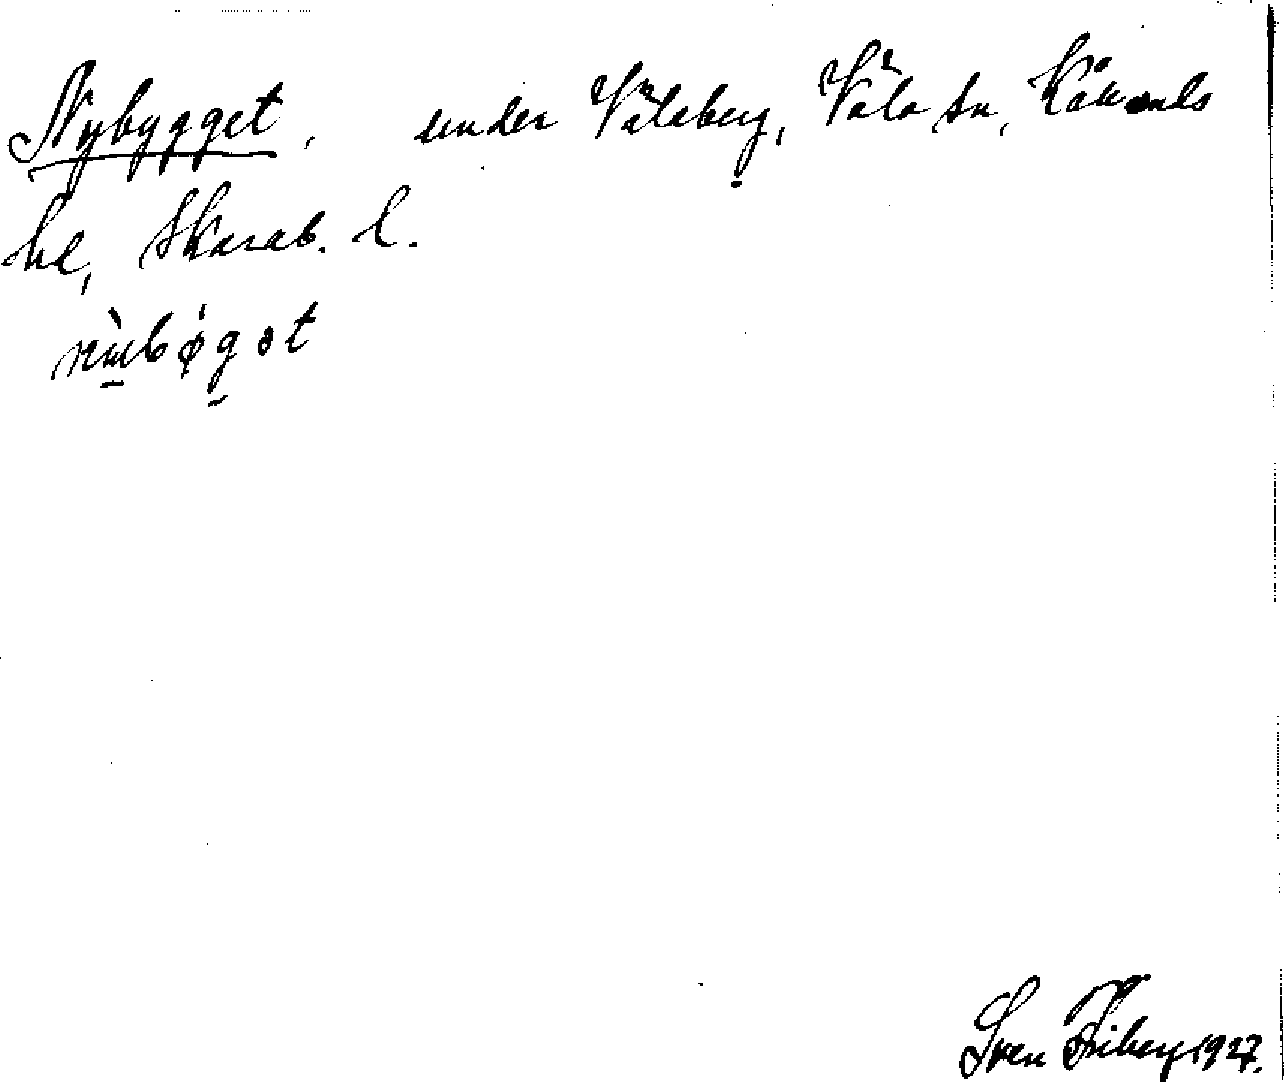 Nybygget, under Våleberg, Våla sn, Kåkinds
hd, Skarab. l.
nɯ̀bǿgət
Sven Friberg 1927.